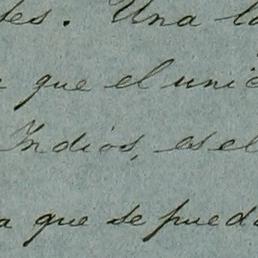 tes. Una la
que el unic
Indios, es el
a que se pueda